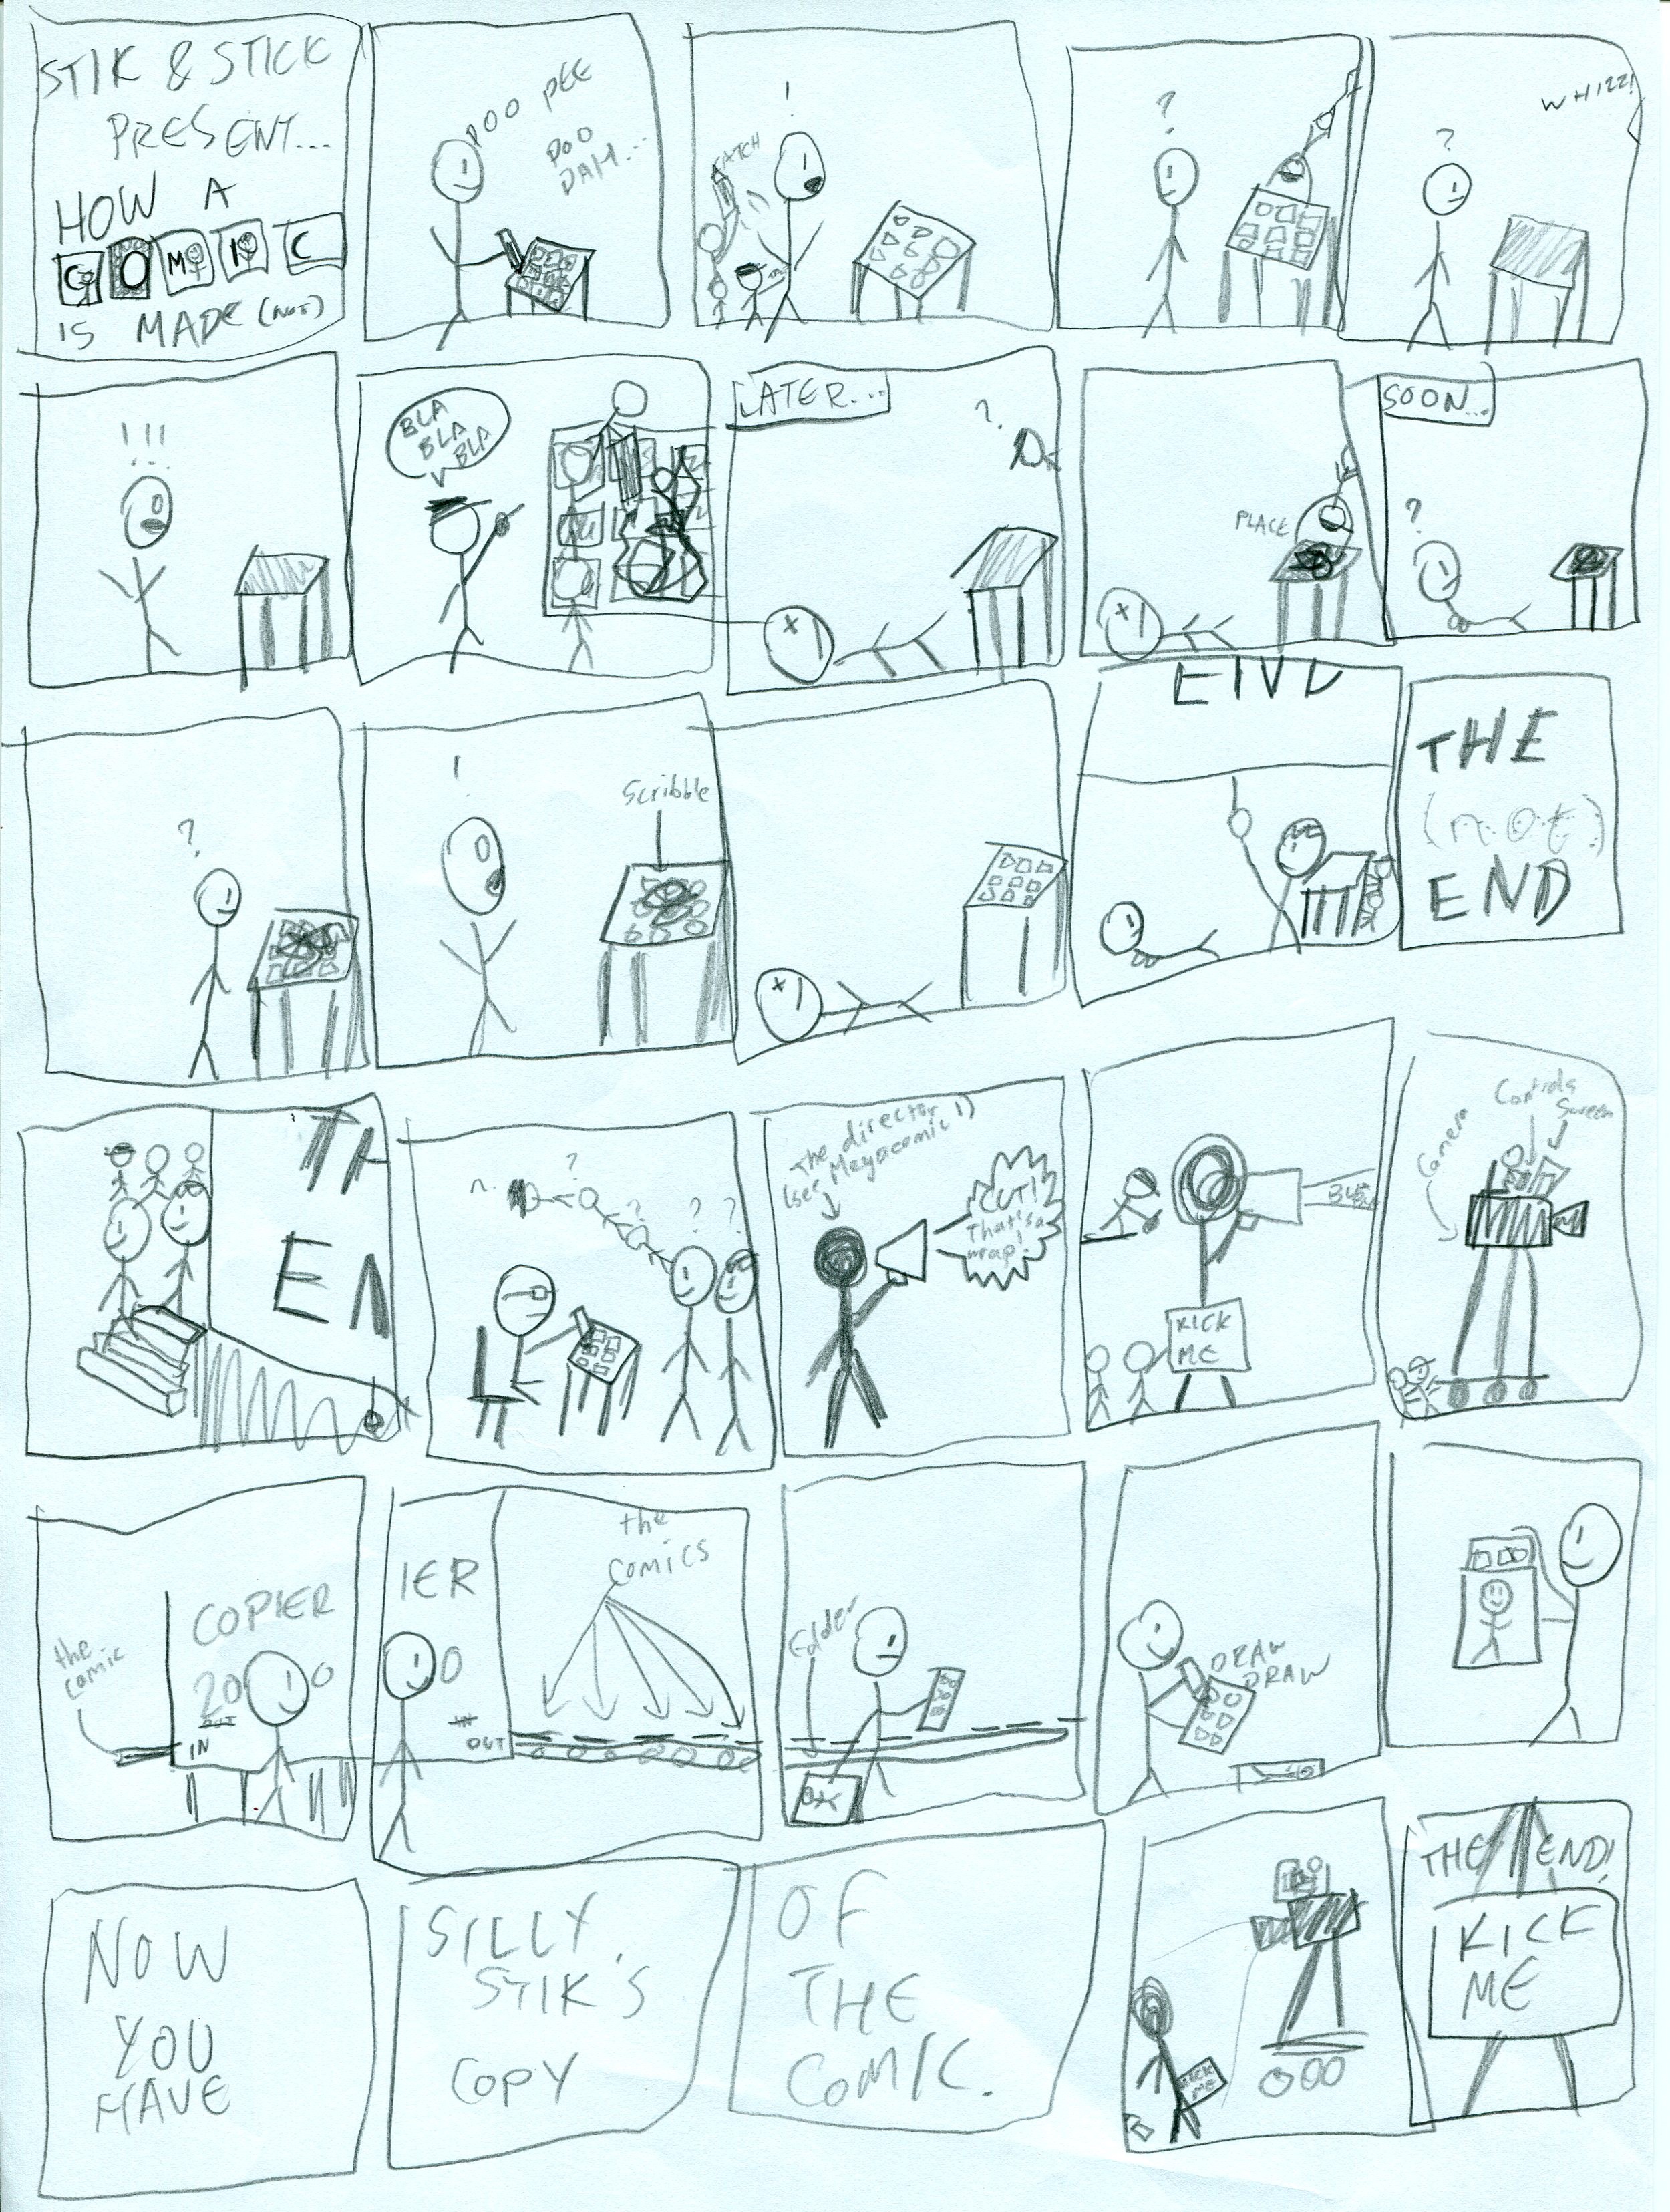 STIK & STICK
PRESENT...
HOW A
COMIC
IS MADE (NOT)
DOO PEE
DOO
DAH...
!
?
?
WHIZZ!
!!!
BLA
BLA
BLA
LATER...
?
PLACE
SOON...
?
?
!
Scribble
END
THE
(not)
END
TH
EN
?
?
?
?
The director
(see Megacomic 1)
CUT!
That's a
wrap!
KICK
ME
Camera
Controls
Screen
the
comic
COPIER
2000
OUT
IN
IER
0
IN
OUT
the
comics
DRAW
DRAW
NOW
YOU
HAVE
SILLY
STIK'S
COPY
OF
THE
COMIC.
KICK
ME
THE END!
KICK
ME